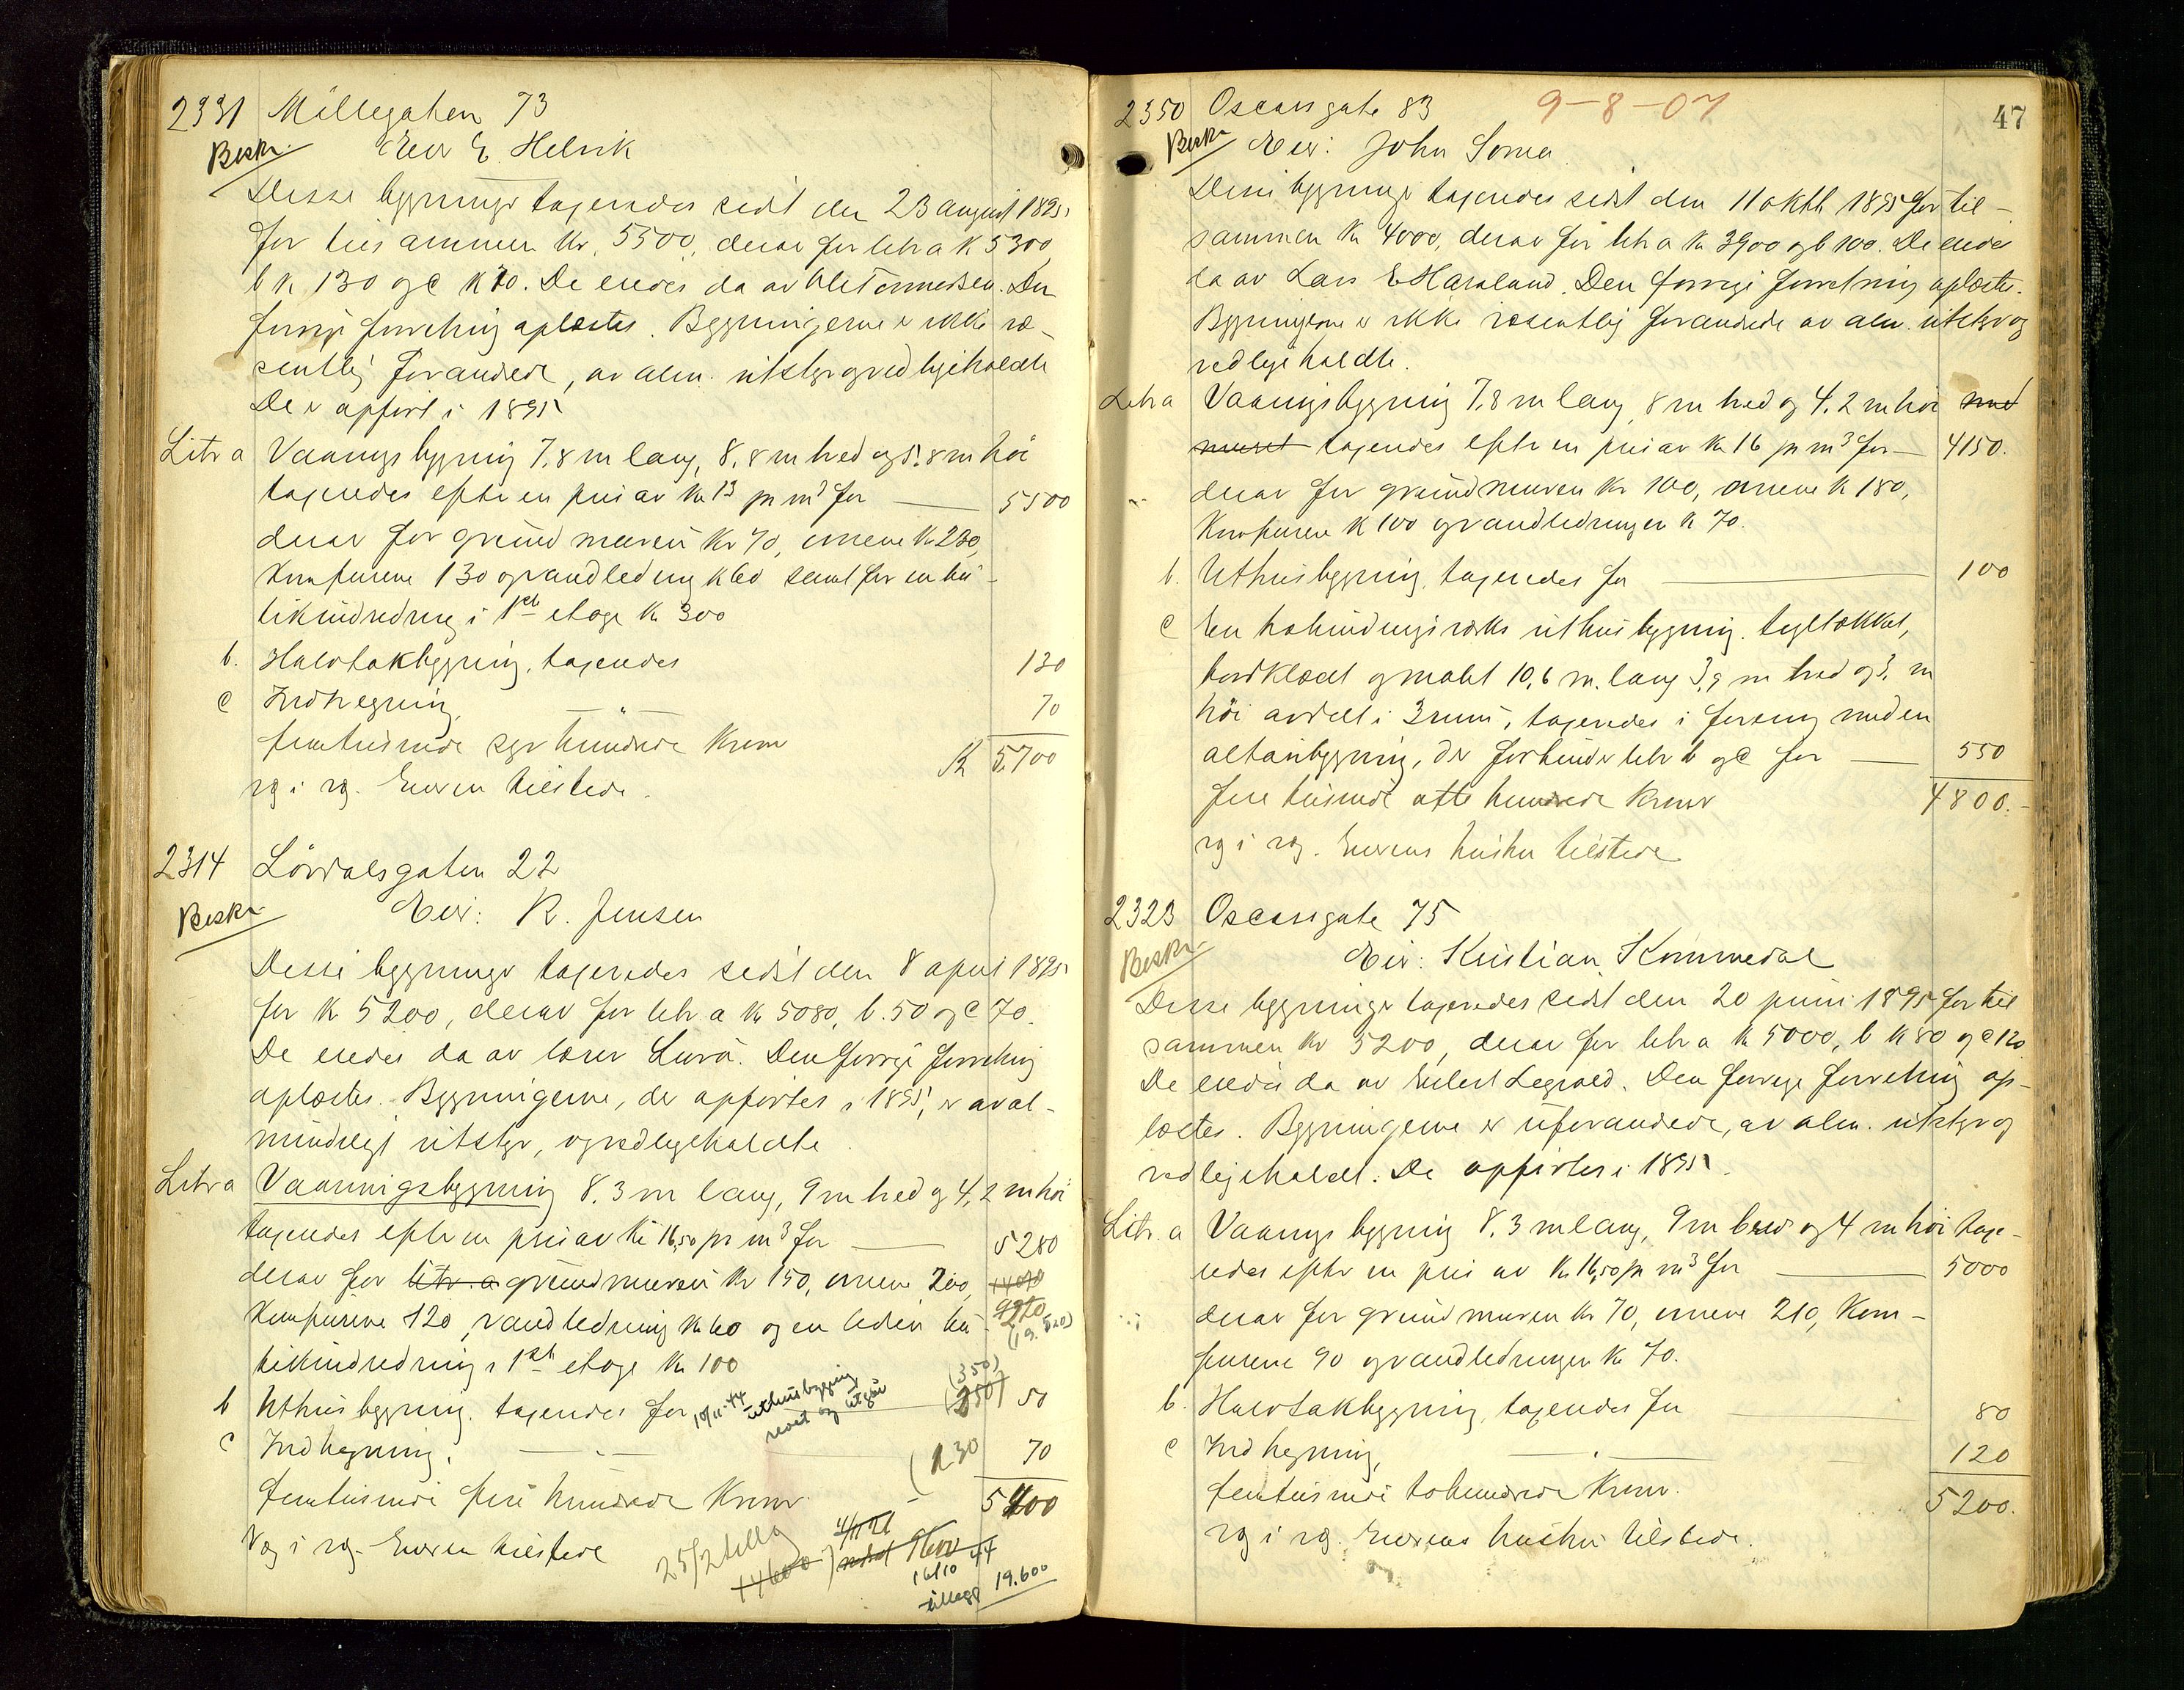 2331 Möllegaten 73
Beskr. Eier E. Helvik
Disse bygninger taxeredes sidst den 23 august 1895
for tilsammen kr. 5500, derav for litr a k 5300
b k 130 og c k 70. De eiedes da av Ole Tønnessen. Den
forrige forretning oplæstes. Bygningerne er ikke væ-
sentlig forandrede, av alm. utstyr og vedligeholdte
De er opført i 1895
Litr a Vaaningsbygning 7,8 m lang, 8,8 m bred og 5,8 m höi
taxeredes efter en pris av kr 13 pr m3 for — 5500
derav for grundmuren kr 70, ovnene kr 230,
Komfurene 130 og vandledning k 60 samt for en bu-
tikindredning i 1ste etage kr 300
b. Halvtakbygning, taxeredes 130
c Indhegning, — " — 70
femtusinde syv hundrede Kroner K 5700
rg i rg. Eieren tilstede.
2314 Lövdalsgaten 22
Beskr. Eier: R. Jensen
Disse bygninger taxeredes sidst den 8 april 1895
for k 5200, derav for litr. a kr 5080, b. 50 og c 70.
De eiedes da av lærer Lurå. Den forrige forretning
oplæstes. Bygningerne, der opførtes i 1895, er av al-
mindelig utstyr, og vedligeholdte
Litr a Vaaningsbygning 8.3 m lang, 9 m bred og 4,2 m höi
taxeredes efter en pris av kr 16,50 pr m3 for — 5280
derav for litr. a grundmuren kr 150, ovnene 200,
Komfurene 120, vandledning kr 60 og en liden bu-
tikindredning i 1ste etage kr 100
b Uthusbygning. taxeredes for 10/11-44 uthusbygning revet og utgår (350) 50
c Indhegning. — " — (130 70
femtusinde fire hundrede Kroner 5400
rg i rg. Eieren tilstede
25/2 tillæg 14600
9600
16/10 44
tillegg 19.600
47
2350 Oscarsgate 83 9-8-07
Beskr Eier: John Soma
Disse bygninger taxeredes sidst den 11 oktb 1895 for til-
sammen kr 4000, derav for litr a kr 3900 og b 100. De eiedes
da av Lars E Haraland. Den forrige forretning oplæstes.
Bygningerne er ikke væsentlig forandrede av alm. utstyr og
vedligeholdte.
Litr a Vaaningsbygning 7,8 m lang 8 m bred og 4,2 m höi med
muret taxeredes efter en pris av kr 16 pr m3 for — 4150.
derav for grundmuren kr 100, ovnene k 180,
Komfurene k 100 og vandledningen k 70.
b. Uthusbygning, taxeredes for 100
c En halvindingsværks uthusbygning. tegltækket,
bordklædt og malet 10,6 m. lang 3,9 m bred og 3, m
höi avdelt i 3 rum, taxeredes i forening med en
altanbygning, der forbinder litr b og c for — 550
fire tusinde otte hundrede kroner 4800.-
rg i rg. Eierens hustru tilstede
2323 Oscarsgate 75
Beskr. Eier: Kristian Kommedal
Disse bygninger taxeredes sidst den 20 juni 1895 for til
sammen kr 5200, derav for litr a k 5000, b k 80 og c 120
De eiedes da av Eilert Legvold. Den forrige forretning op-
læstes. Bygningerne er uforandrede, av alm. utstyr og
vedligeholdt. De opførtes i 1895.
Litr. a Vaaningsbygning 8.3 m lang, 9 m bred og 4 m höi taxe-
redes efter en pris av kr 16,50 pr m3 for — 5000
derav for grundmuren kr 70, ovnene 210, Kom-
furene 90 og vandledningen kr 70.
b. Halvtakbygning, taxeredes for 80
c Indhegning, — " — 120
femtusinde tohundrede Kroner. 5200.
rg i rg. Eierens hustru tilstede.